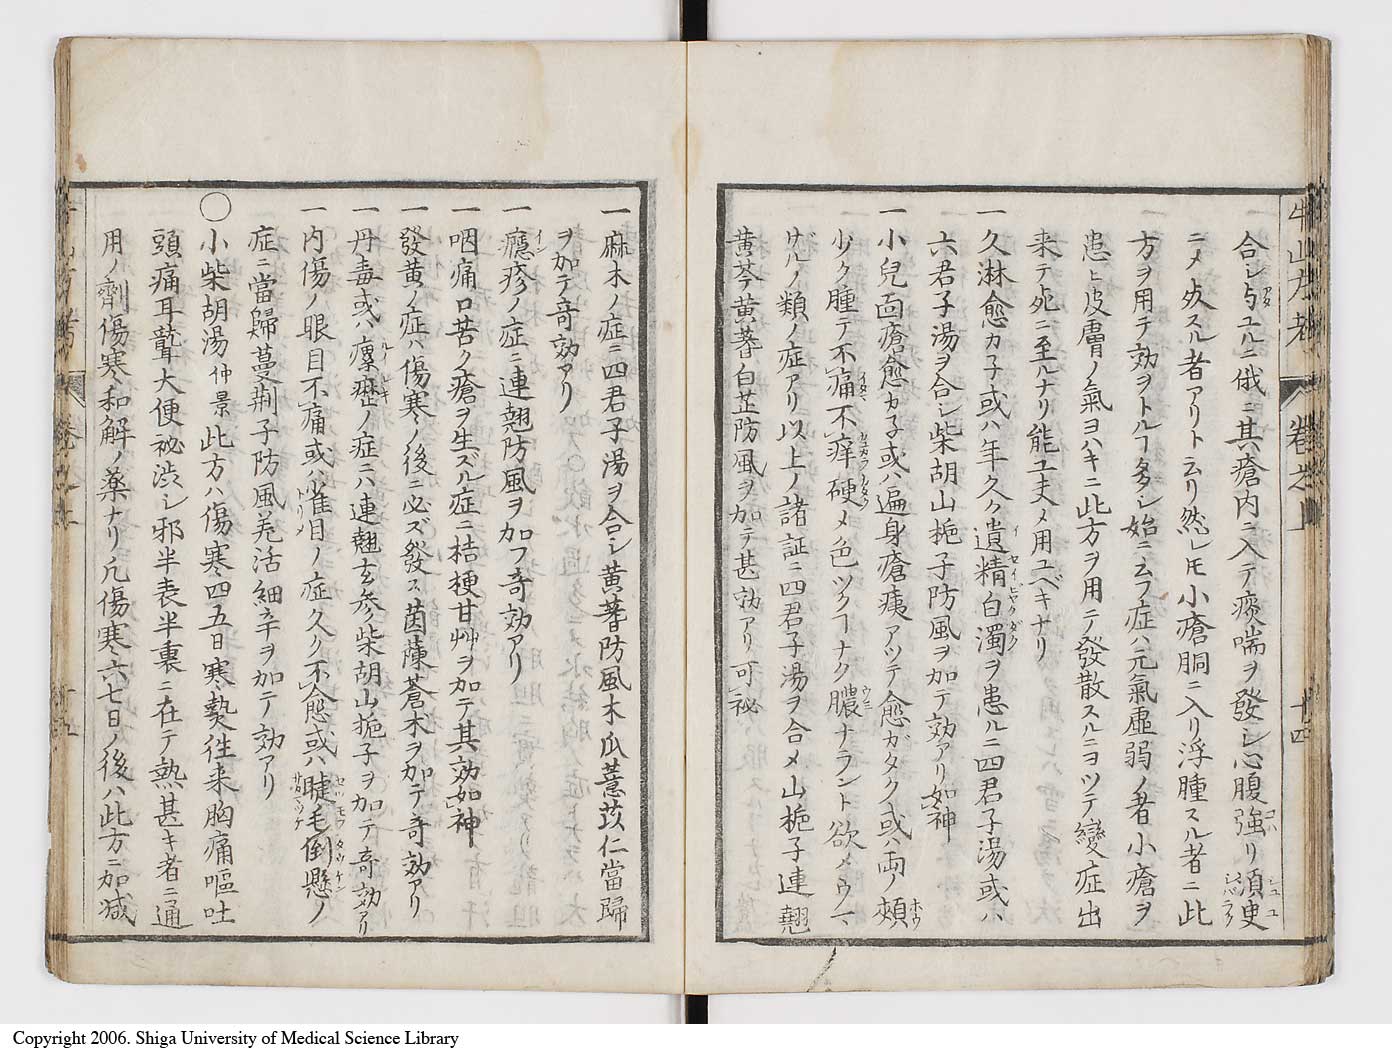 牛山方考 卷之上 十四
合シ與ユルニ俄ニ其瘡内ニ入テ痰喘ヲ發シ心腹強リ須臾
ニメ死スル者アリト云リ然レモ小瘡胴ニ入リ浮腫スル者ニ此
方ヲ用テ効ヲトルヿ多シ始ニ云フ症ハ元氣虚弱ノ者小瘡ヲ
患ヒ皮膚ノ氣ヨハキニ此方ヲ用テ發散スルニヨツテ變症出
来テ死ニ至ルナリ能エ夫メ用ユベキナリ
一久淋愈カ子或ハ年久ク遺精白濁ヲ患ルニ四君子湯或ハ
六君子湯ヲ合シ柴胡山梔子防風ヲ加テ効アリ如神
一小兒面瘡愈カ子或ハ遍身瘡痍アツテ愈ガタク或ハ両ノ頰
少ク腫テ不痛不痒硬メ色ツクヿナク膿ナラント欲メウマ
ザルノ類ノ症アリ以上ノ諸証ニ四君子湯ヲ合メ山梔子連翹
黄芩黄蓍白芷防風ヲ加テ甚効アリ可祕
一麻木ノ症ニ四君子湯ヲ合シ黄蓍防風木瓜薏苡仁當歸
ヲ加テ奇効アリ
一癮疹ノ症ニ連翹防風ヲ加フ奇効アリ
一咽痛口苦ク瘡ヲ生ズル症ニ桔梗甘艸ヲ加テ其効如神
一發黄ノ症ハ傷寒ノ後ニ必ズ發ス茵蔯蒼朮ヲ加テ奇効アリ
一丹毒或ハ瘰癧ノ症ニハ連翹玄参柴胡山梔子ヲ加テ奇効アリ
一内傷ノ眼目不痛或ハ雀目ノ症久ク不愈或ハ睫毛倒懸ノ
症ニ當歸蔓荊子防風羌活細辛ヲ加テ効アリ
○小柴胡湯仲景此方ハ傷寒四五日寒熱徃来胸痛嘔吐
頭痛耳聾大便祕渋シ邪半表半裏ニ在テ熱甚キ者ニ通
用ノ劑傷寒和解ノ藥ナリ凡傷寒六七日ノ後ハ此方ニ加减
Copyright 2006. Shiga University of Medical Science Library